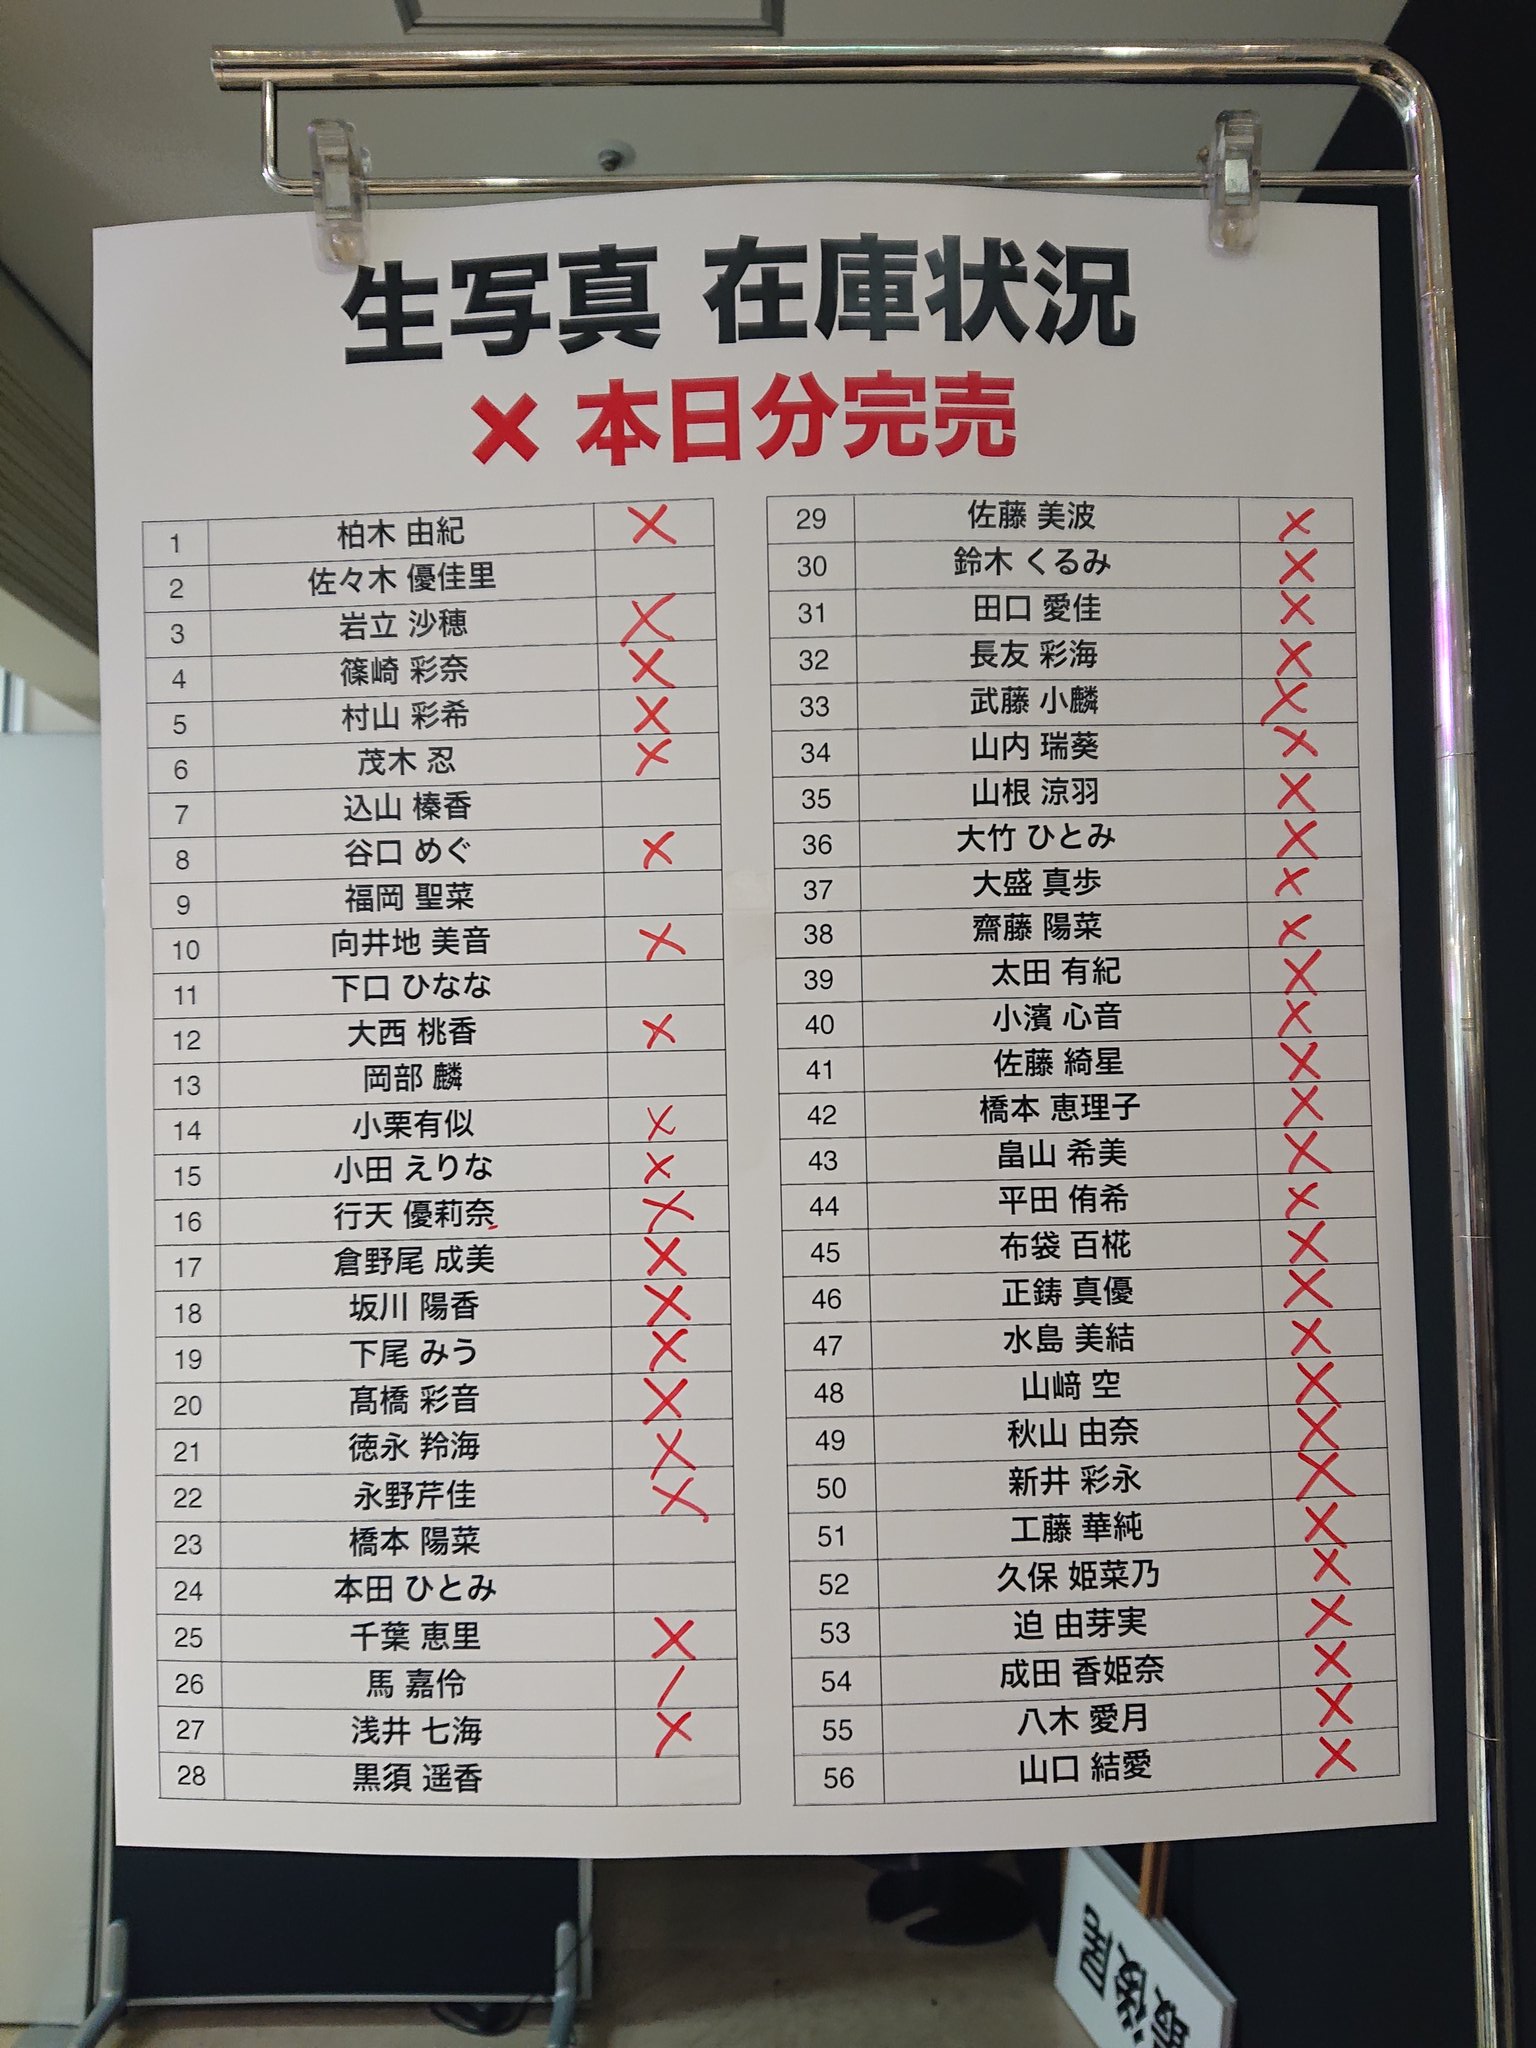 生写真 在庫状況
× 本日分完売
1 柏木 由紀 ×
2 佐々木 優佳里
3 岩立 沙穂 ×
4 篠崎 彩奈 ×
5 村山 彩希 ×
6 茂木 忍 ×
7 込山 榛香
8 谷口 めぐ ×
9 福岡 聖菜
10 向井地 美音 ×
11 下口 ひなな
12 大西 桃香 ×
13 岡部 麟
14 小栗有似 ×
15 小田 えりな ×
16 行天 優莉奈 ×
17 倉野尾 成美 ×
18 坂川 陽香 ×
19 下尾 みう ×
20 髙橋 彩音 ×
21 徳永 羚海 ×
22 永野芹佳 ×
23 橋本 陽菜
24 本田 ひとみ
25 千葉 恵里 ×
26 馬 嘉伶 /
27 浅井 七海 ×
28 黒須 遥香
29 佐藤 美波 ×
30 鈴木 くるみ ×
31 田口 愛佳 ×
32 長友 彩海 ×
33 武藤 小麟 ×
34 山内 瑞葵 ×
35 山根 涼羽 ×
36 大竹 ひとみ ×
37 大盛 真歩 ×
38 齋藤 陽菜 ×
39 太田 有紀 ×
40 小濱 心音 ×
41 佐藤 綺星 ×
42 橋本 恵理子 ×
43 畠山 希美 ×
44 平田 侑希 ×
45 布袋 百椛 ×
46 正鋳 真優 ×
47 水島 美結 ×
48 山﨑 空 ×
49 秋山 由奈 ×
50 新井 彩永 ×
51 工藤 華純 ×
52 久保 姫菜乃 ×
53 迫 由芽実 ×
54 成田 香姫奈 ×
55 八木 愛月 ×
56 山口 結愛 ×